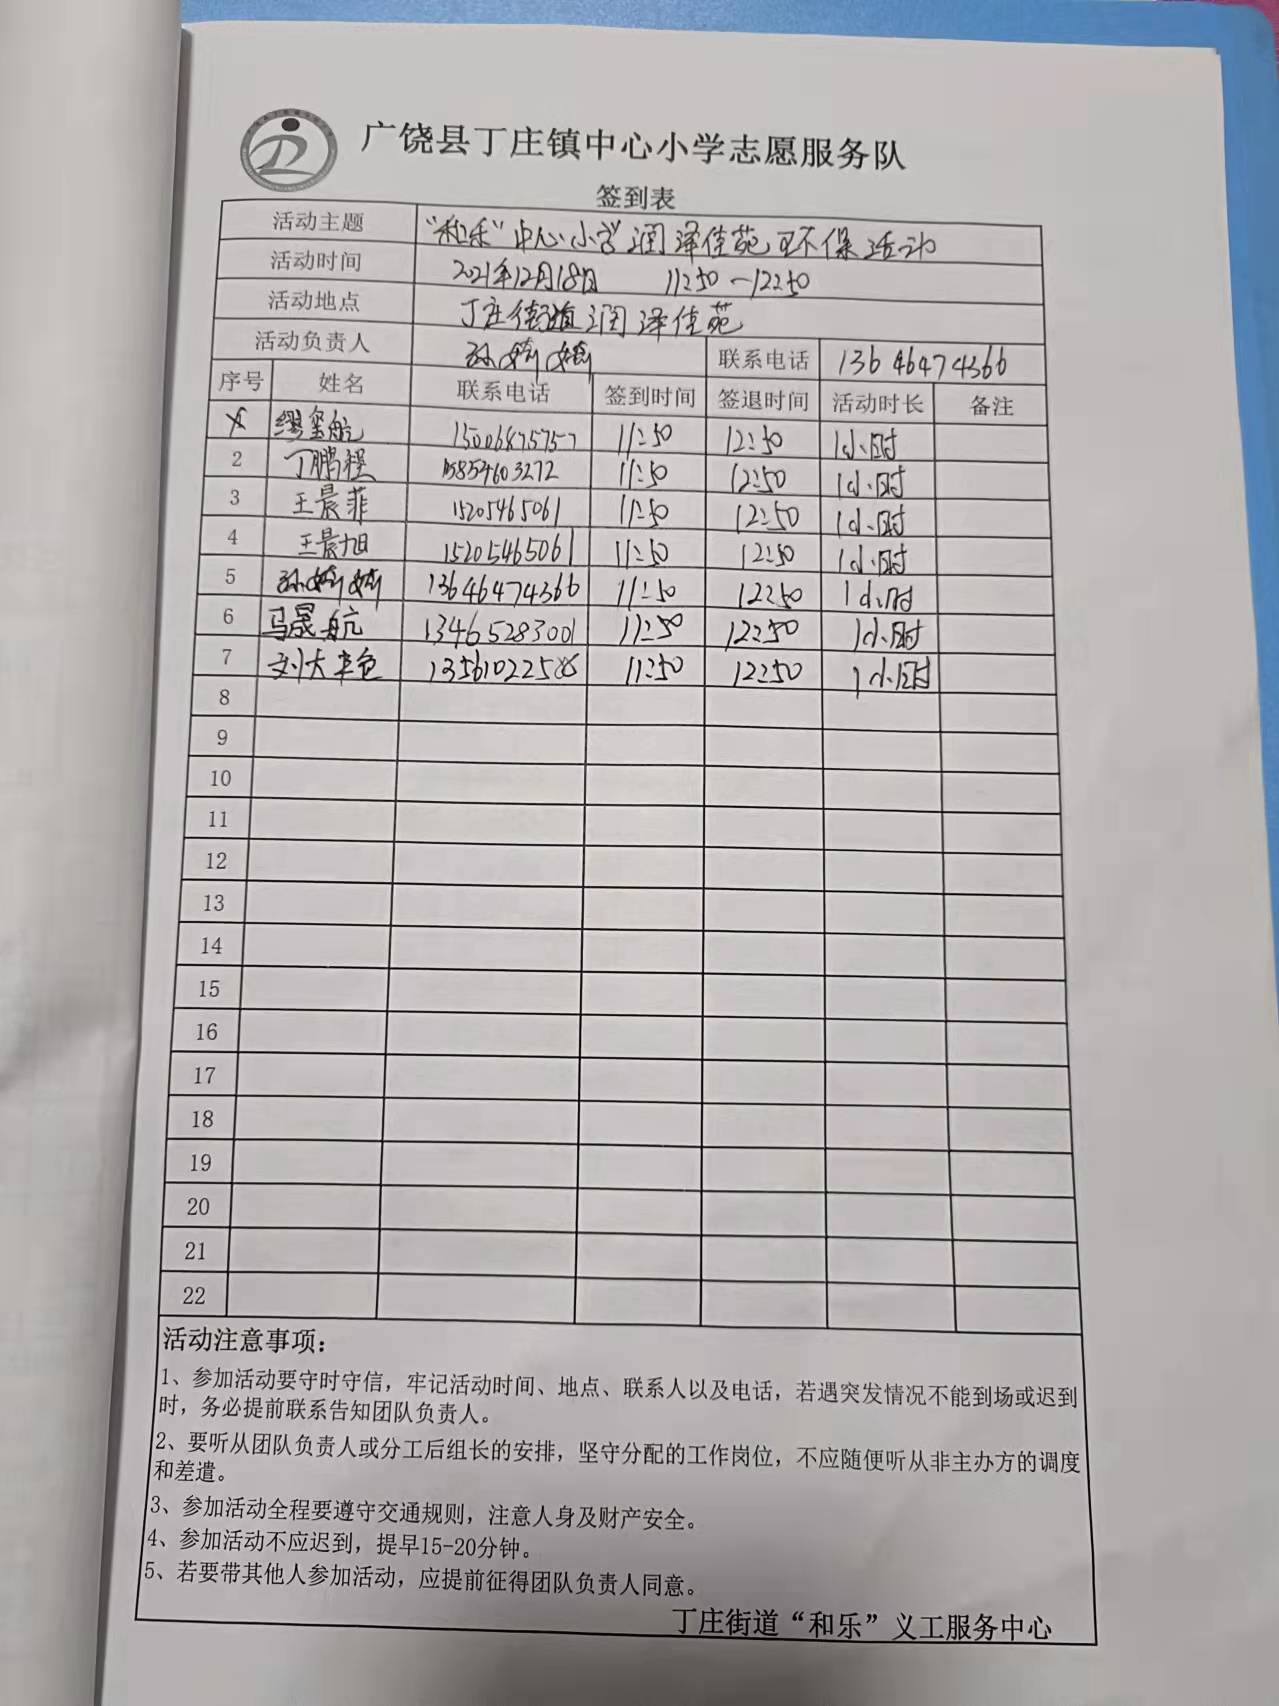 广饶县丁庄镇中心小学志愿服务队
签到表
活动主题 “和乐”中心小学润泽佳苑环保活动
活动时间 2021年12月18日 11:50—12:50
活动地点 丁庄街道润泽佳苑
活动负责人 孙婷婷 联系电话 13646474366
序号 姓名 联系电话 签到时间 签退时间 活动时长 备注
缪玺航 15006875757 11:50 12:50 1小时
2 丁鹏程 15854603272 11:50 12:50 1小时
3 王晨菲 15205465061 11:50 12:50 1小时
4 王晨旭 15205465061 11:50 12:50 1小时
5 孙婷婷 13646474366 11:50 12:50 1小时
6 马晟航 13465283001 11:50 12:50 1小时
7 11:50 12:50 1小时
8
9
10
11
12
13
14
15
16
17
18
19
20
21
22
活动注意事项：
1、参加活动要守时守信，牢记活动时间、地点、联系人以及电话，若遇突发情况不能到场或迟到
时，务必提前联系告知团队负责人。
2、要听从团队负责人或分工后组长的安排，坚守分配的工作岗位，不应随便听从非主办方的调度
和差遣。
3、参加活动全程要遵守交通规则，注意人身及财产安全。
4、参加活动不应迟到，提早15-20分钟。
5、若要带其他人参加活动，应提前征得团队负责人同意。
丁庄街道“和乐”义工服务中心